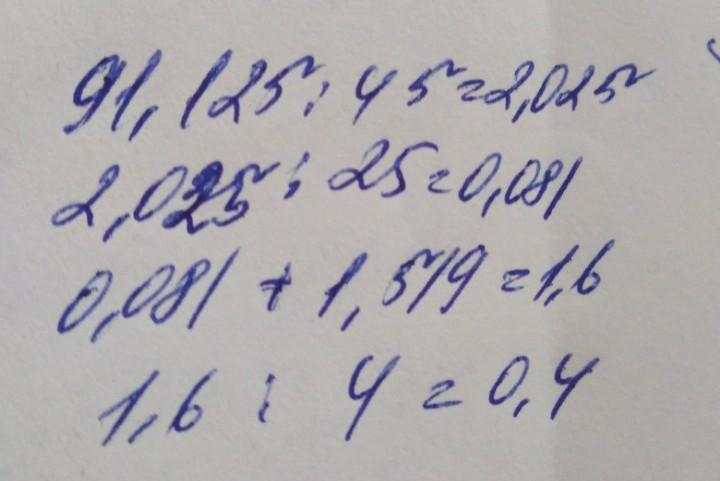 91,125:45=2,025
2,025:25=0,081
0,081+1,519=1,6
1,6:4=0,4